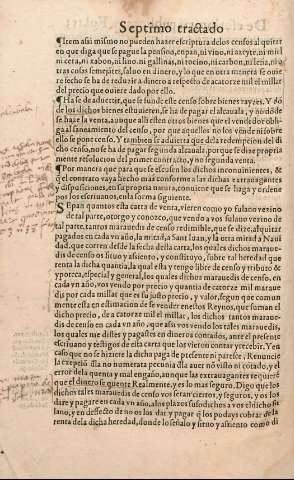 Septimo tractado
¶ Item assi mismo no pueden hazer escriptura delos censos al quitar
en que diga que se pague la pension, en pan, ni vino, ni azeyte, ni miel
ni cera, ni xabon, ni lino, ni gallinas, ni tocino, ni carbon, ni leña, ni o
tras cosas semejãtes, saluo en dinero, y lo que en otra manera se ouie
re fecho se ha de reduzir a dinero a respecto de a catorze mil el millar
del precio que ouiere dado por ello.
¶ Ha se de aduertir, que se funde este censo sobre bienes rayzes. Y dõ
de los dichos bienes estuuieren, se ha de pagar el alcauala, y no dõde
se haze la venta, aunque alli esten otros bienes que el vendedor obli
ga al saneamiento del censo, porque aquellos no los vẽde ni sobre
ello se pone censo. Y tambien se aduierta que dela redempcion del di
cho censo, no se ha de pagar segunda alcauala, por que se dize propria
mente resolucion del primer contracto, y no segunda venta.
¶ Por manera que para que se escusen los dichos inconuinientes, &
que el contrato vaya hecho mas conforme a las dichas extrauagantes
y disposiciones, en su propria natura, conuiene que se haga y ordene
por los escriuanos, en la forma siguiente.
SEpan quantos esta carta de venta, vieren como yo fulano vezino
de tal parte, otorgo y conozco, que vendo a vos fulano vezino de
tal parte, tantos marauedis de censo redimible, que se dize, al quitar
pagados en cada vn año, la mitad, a Sant Iuan, y la otra mitad a Naui
dad, que corren desde la fecha desta carta, los quales dichos maraue
dis de censo os situo y assiento, y constituyo, sobre tal heredad que
renta la dicha quantia, la qual esta y tengo libre de censo y tributo &
ypoteca, especial y general, los quales dichos marauedis de censo, en
cada vn año, vos vendo por precio y quantia de catorze mil maraue
dis por cada millar que es su justo precio, y valor, segun que comun
mente esta en estimacion de se vender en estos Reynos, que suman el
dicho precio, de a catorze mil el millar, los dichos tantos maraue
dis de censo en cada vn año, que assi vos vendo los tales marauedis,
los quales me distes y pagastes en dineros contados, ante el presente
escriuano y testigos de esta carta que los vieron contar y recebir. Y en
caso que no se hiziere la dicha paga de presente ni parezca, Renuncio
la excepciõ dla no numerata pecunia dla auer nõ visto ni cõtado, y el
error dela quenta y mal engaño, aunque las extrauagantes requierẽ
que el dinero se quente Realmente, y es lo mas seguro. Digo que los
dichos tales marauedis de censo vos seran ciertos, y seguros, y os los
dare y pagare en cada vn año, a los plazos suso dichos a vos el dicho fu
lano, y en deffecto de no os los dar y pagar q̃ los podays cobrar de la
renta de la dicha heredad, donde lo señalo y situo y assiento como di